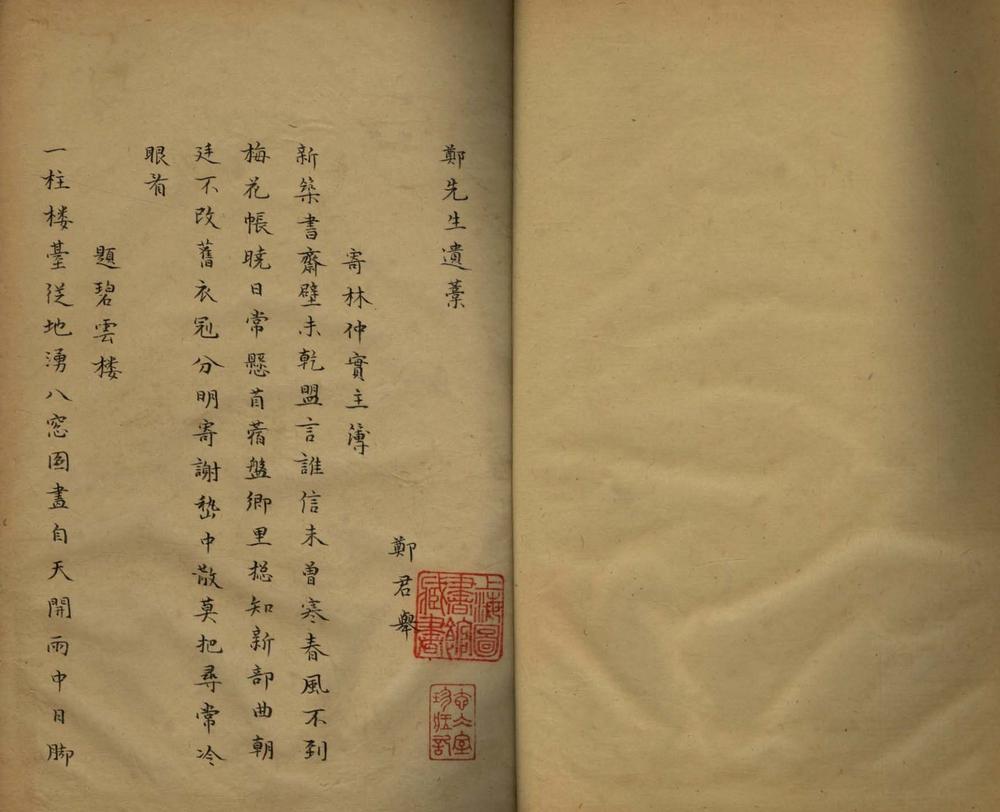 鄭先生遺藁
鄭君舉
寄林仲實主簿
新築書齋壁未乾盟言誰信未曾寒春風不到
梅花帳曉日常懸苜蓿盤鄉里揔知新部曲朝
廷不改舊衣冠分明寄謝嵇中散莫把尋常冷
眼看
題碧雲楼
一柱楼臺從地湧八窓图畫自天開雨中日脚
上海圖
書館
藏書